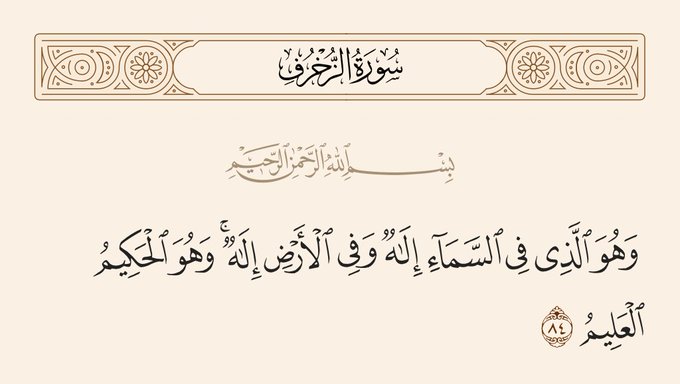 سُورَةُ الزُّخْرُفِ
بِسْمِ اللَّهِ الرَّحْمَٰنِ الرَّحِيمِ
وَهُوَ ٱلَّذِى فِى ٱلسَّمَآءِ إِلَٰهٌ وَفِى ٱلْأَرْضِ إِلَٰهٌ ۚ وَهُوَ ٱلْحَكِيمُ
ٱلْعَلِيمُ ٨٤